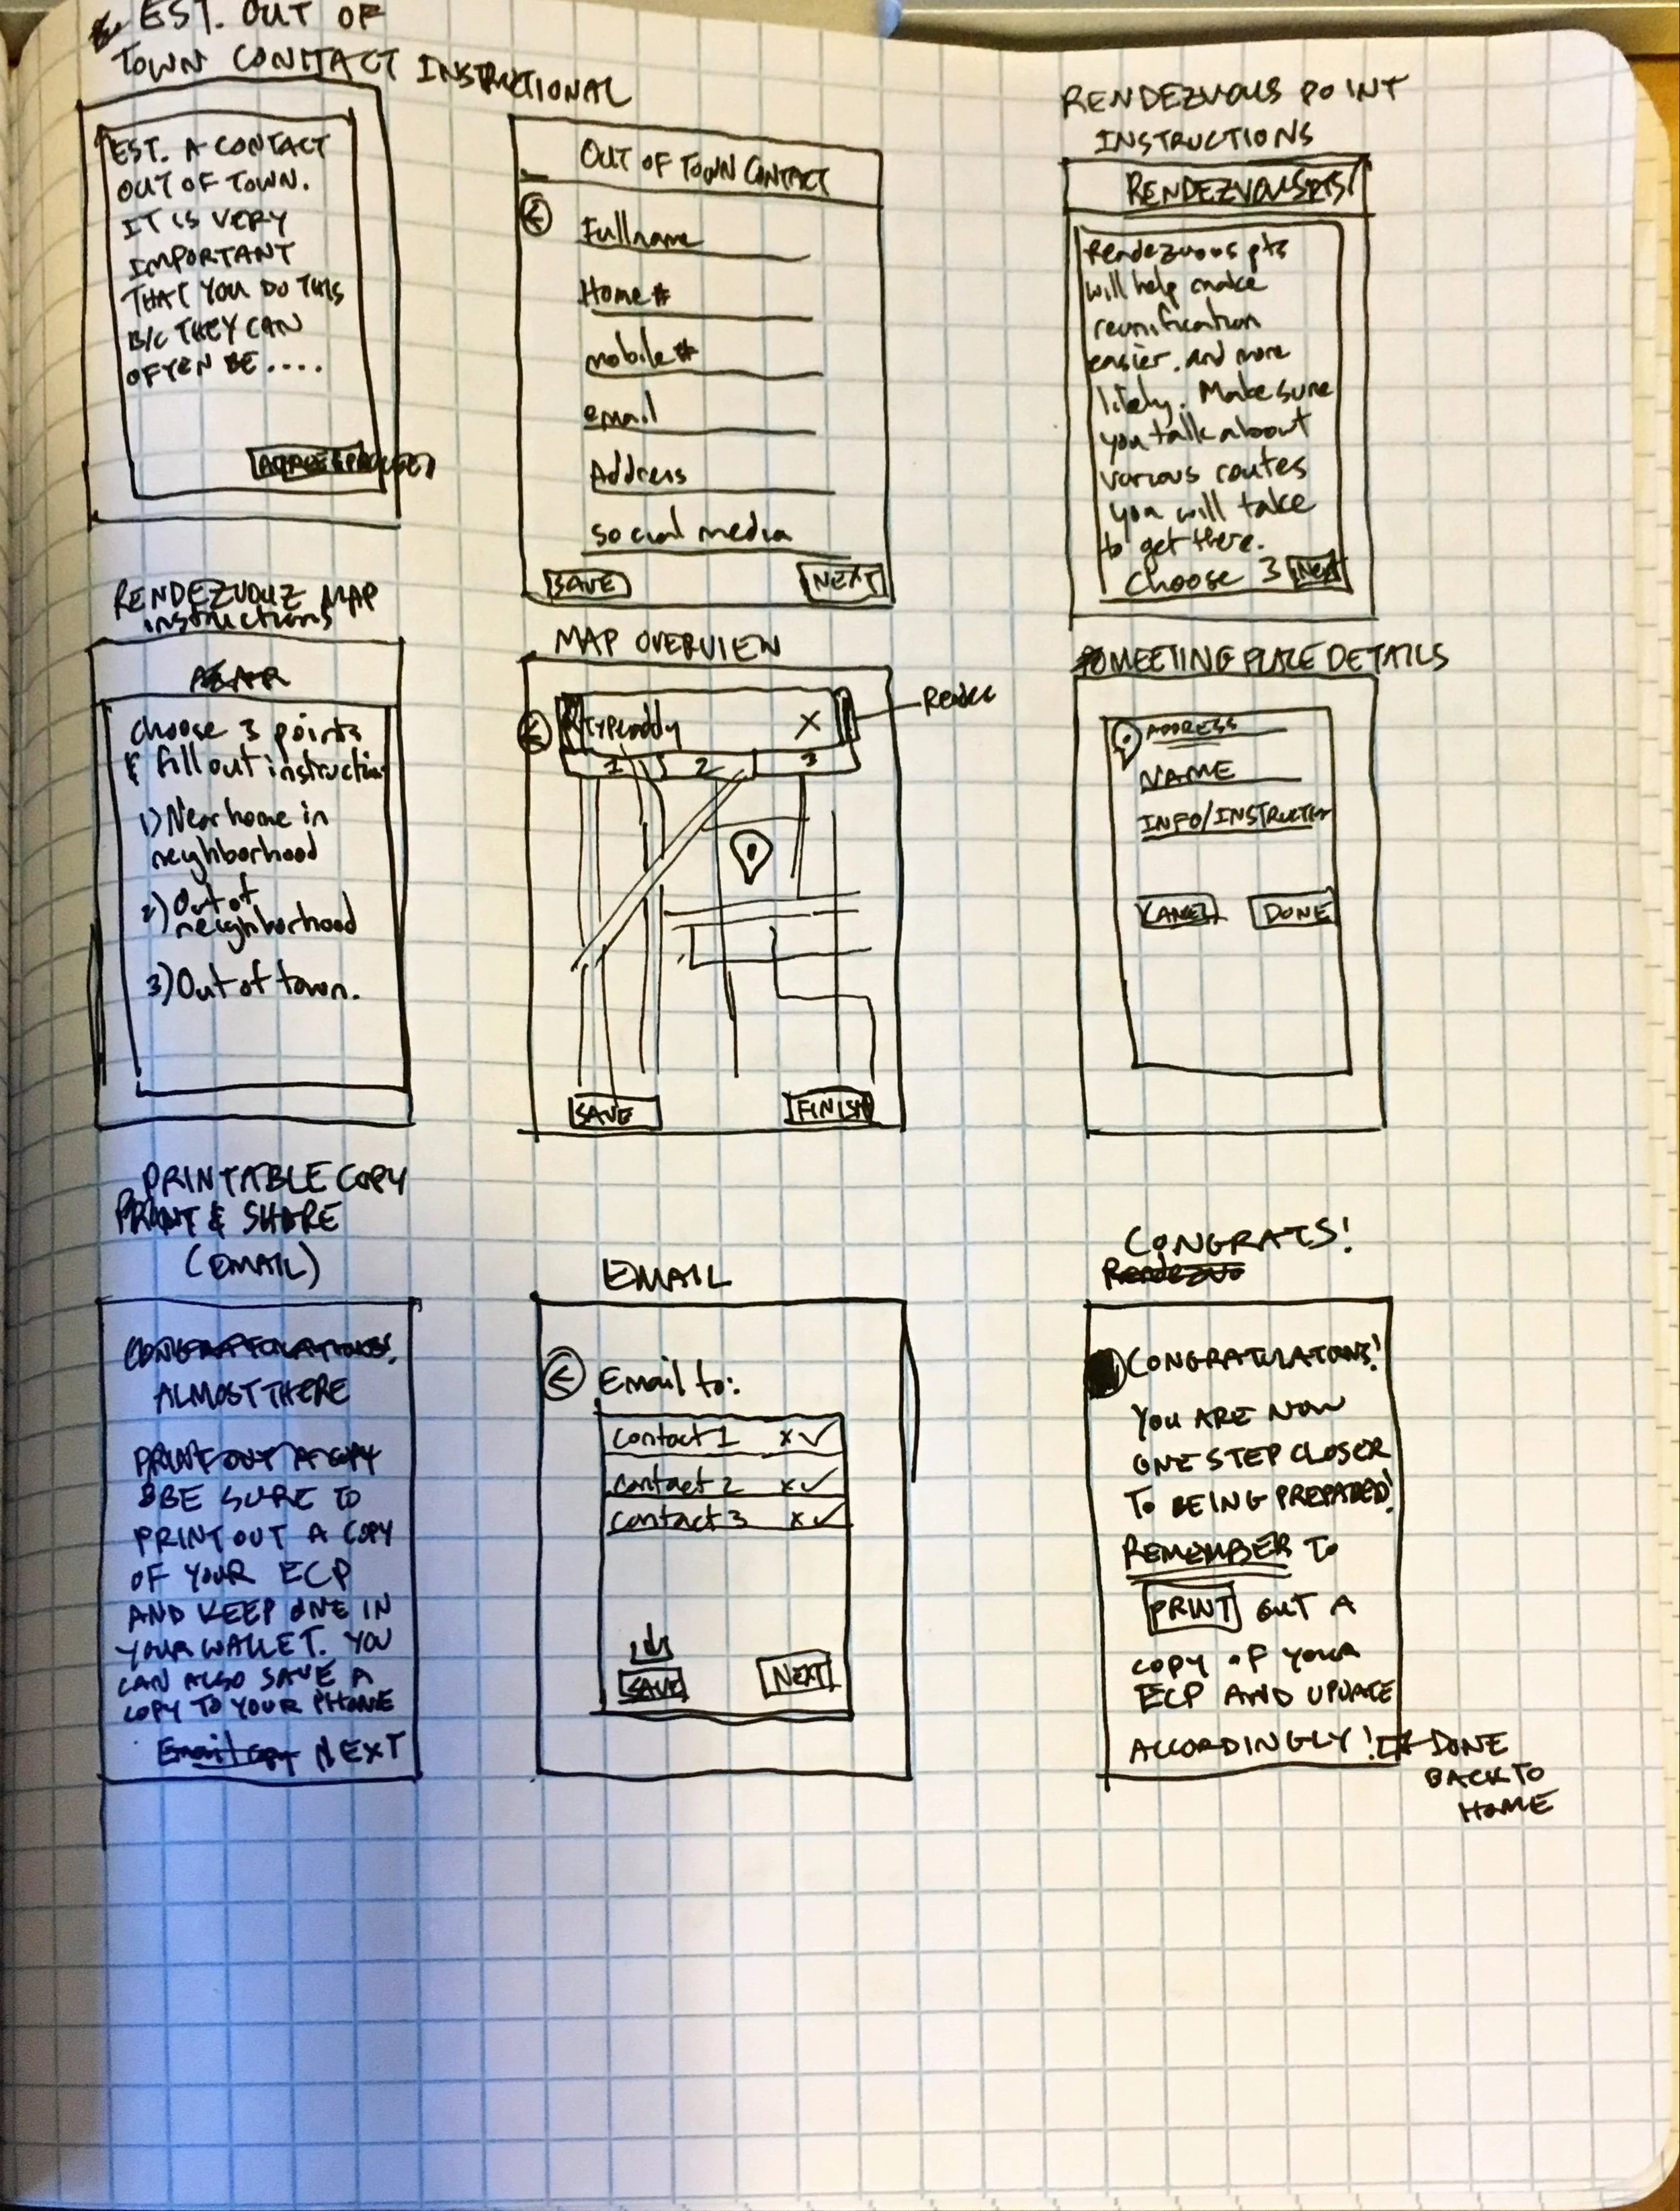 EST. OUT OF
TOWN CONTACT INSTRUCTIONAL
EST. A CONTACT
OUT OF TOWN.
IT IS VERY
IMPORTANT
THAT YOU DO THIS
B/C THEY CAN
OFTEN BE ....
OUT OF TOWN CONTACT
Fullname
Home #
mobile #
email
Address
social media
SAVE
NEXT
RENDEZVOUS POINT
INSTRUCTIONS
RENDEZVOUS PTS
Rendezvous pts
will help make
reunification
easier. and more
likely. Make sure
you talk about
various routes
you will take
to get there.
Choose 3 Next
RENDEZVOUZ MAP
instructions
choose 3 points
& fill out instruction
1) Near home in
neighborhood
2) Out of
neighborhood
3) Out of town.
MAP OVERVIEW
type addy X
1 2 3
SAVE
FINISH
MEETING PLACE DETAILS
ADDRESS
NAME
INFO/INSTRUCTION
CANCEL DONE
PRINTABLE COPY
PRINT & SHARE
(EMAIL)
CONGRATULATIONS!
ALMOST THERE
PRINT OUT A COPY
BE SURE TO
PRINT OUT A COPY
OF YOUR ECP
AND KEEP ONE IN
YOUR WALLET. YOU
CAN ALSO SAVE A
COPY TO YOUR PHONE
Email copy NEXT
EMAIL
Email to:
Contact 1 x ✓
Contact 2 x ✓
Contact 3 x ✓
SAVE
NEXT
CONGRATS!
Rendezvo
CONGRATULATIONS!
YOU ARE NOW
ONE STEP CLOSER
TO BEING PREPARED!
REMEMBER TO
PRINT OUT A
COPY OF YOUR
ECP AND UPDATE
ACCORDINGLY!
DONE
BACK TO
HOME